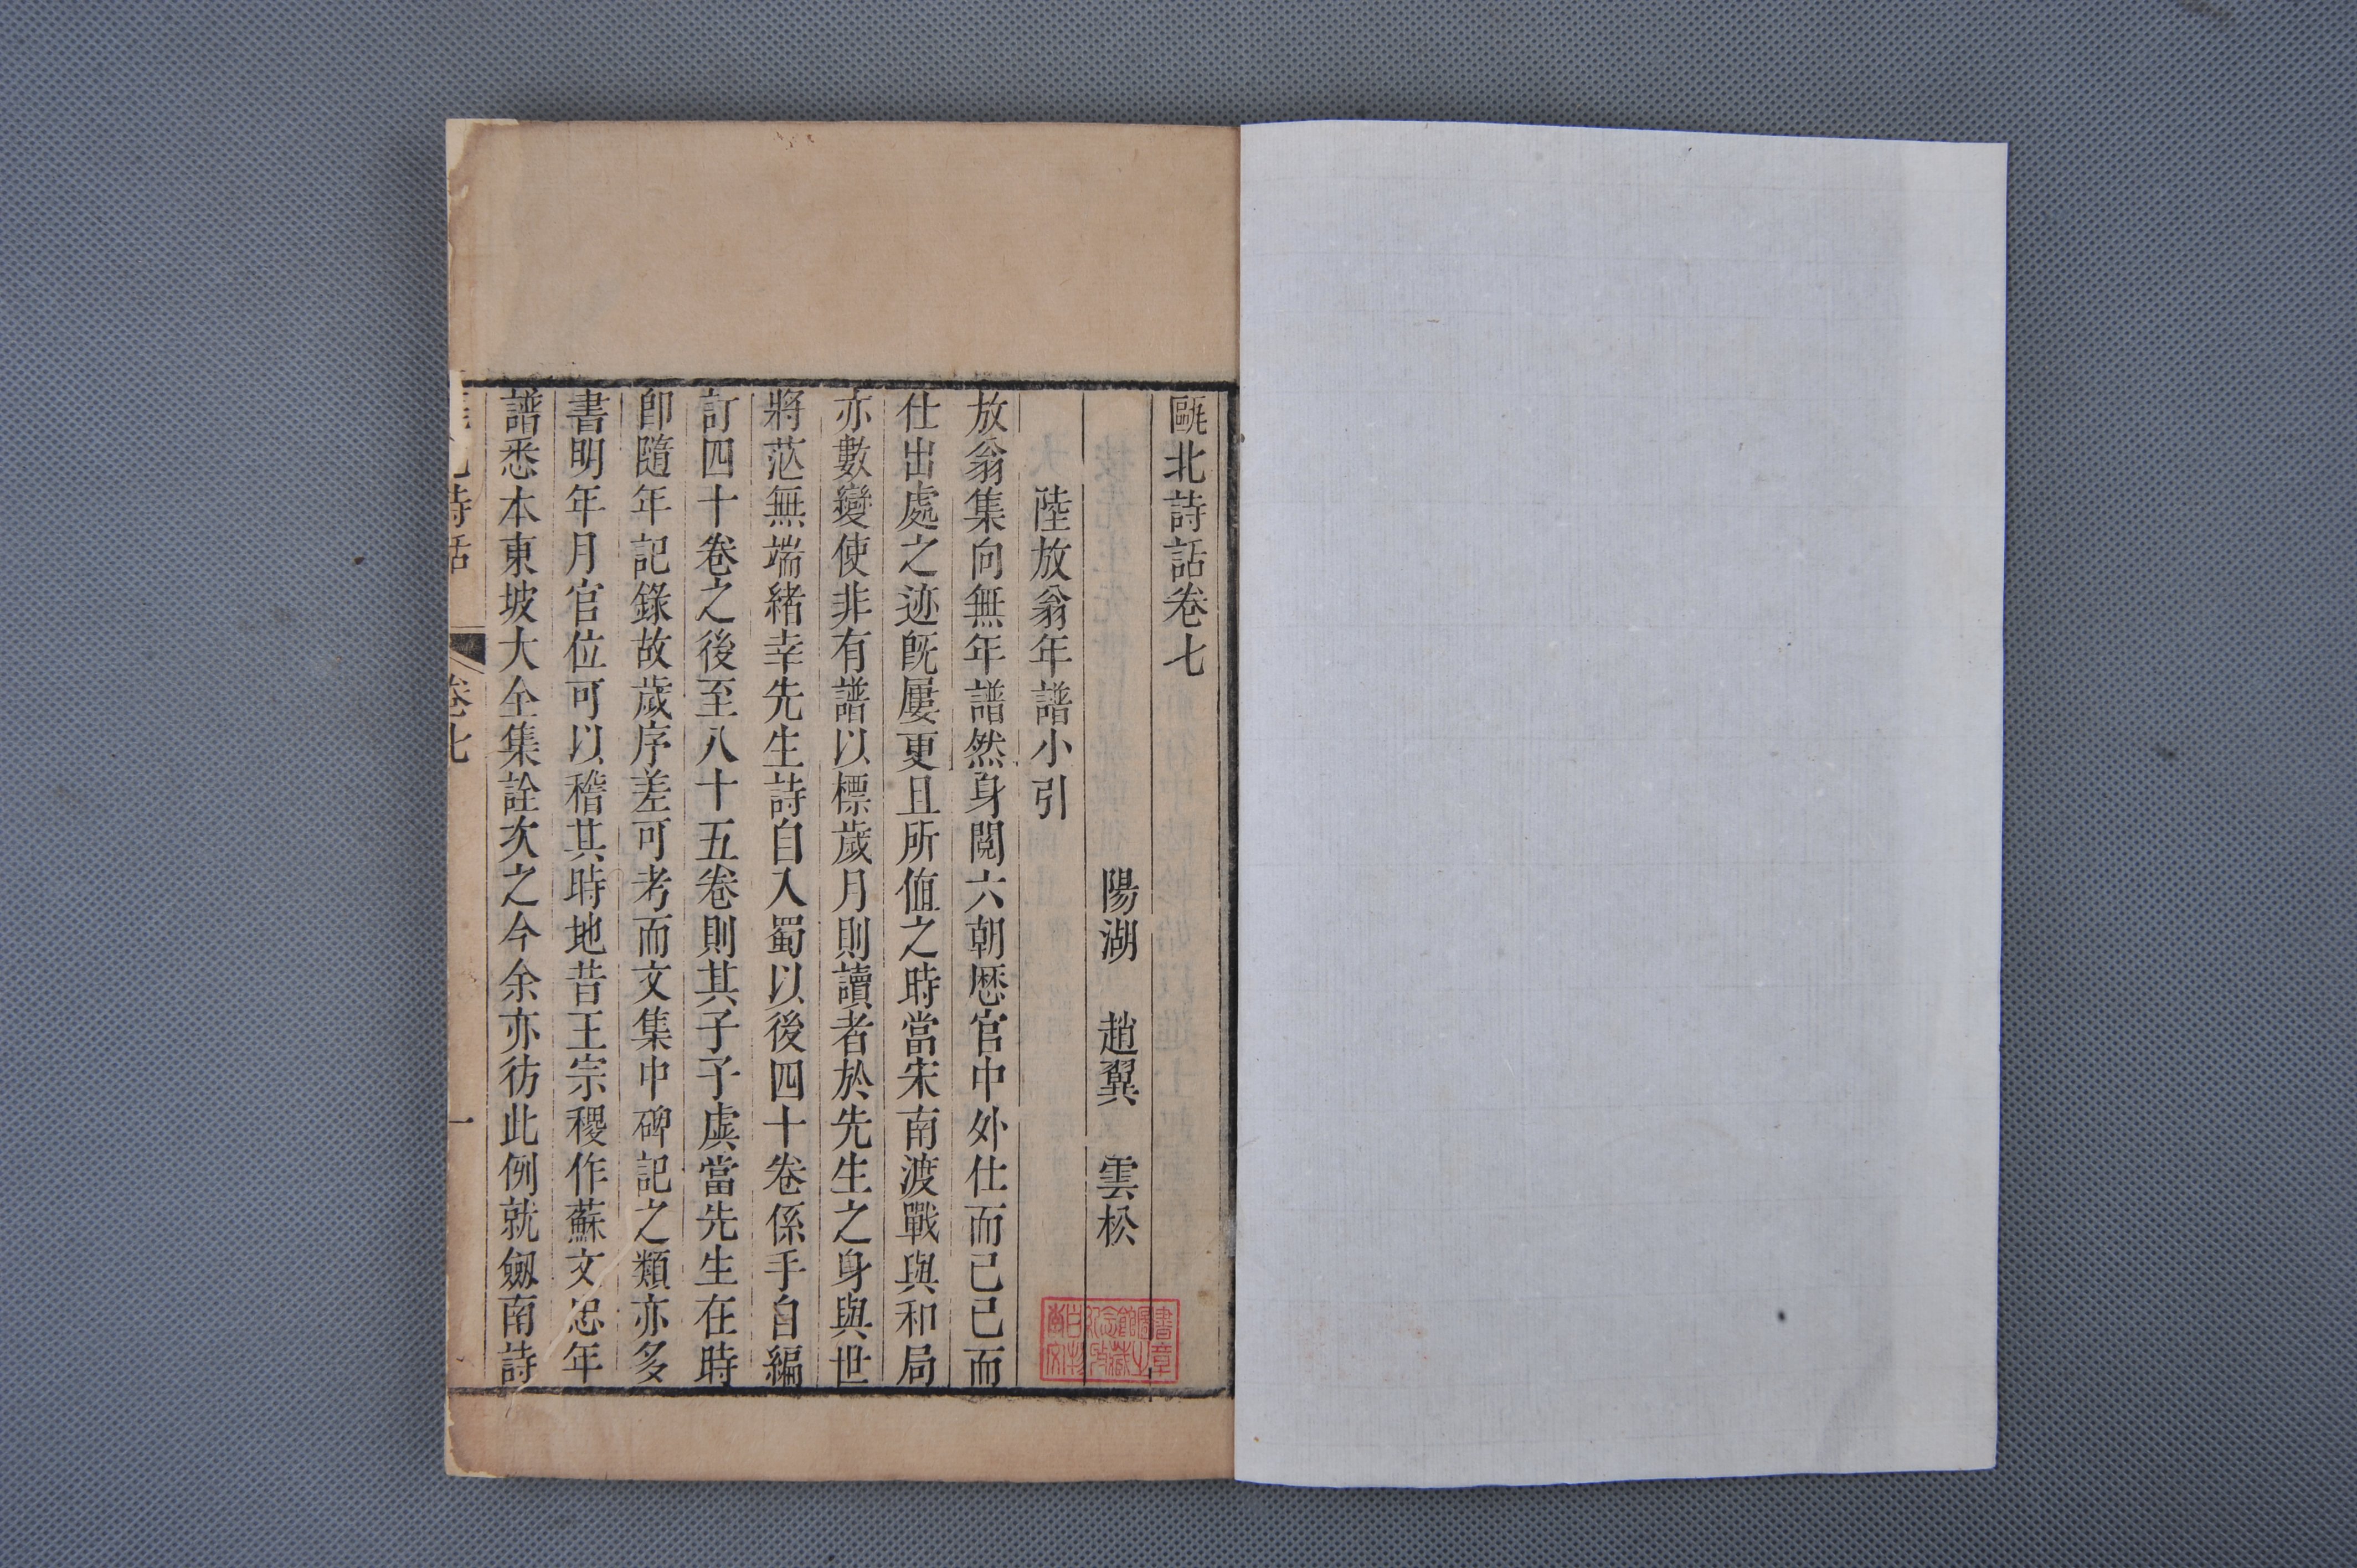 甌北詩話卷七
陽湖 趙翼 雲松
陸放翁年譜小引
放翁集向無年譜然身閱六朝歷官中外仕而已已而
仕出處之迹旣屢更且所值之時當宋南渡戰與和局
亦數變使非有譜以標歲月則讀者於先生之身與世
將茫無端緒幸先生詩自入蜀以後四十卷係手自編
訂四十卷之後至八十五卷則其子子虡當先生在時
卽隨年記錄故歲序差可考而文集中碑記之類亦多
書明年月官位可以稽其時地昔王宗稷作蘇文忠年
譜悉本東坡大全集詮次之今余亦彷此例就劔南詩
詩話
卷七
一